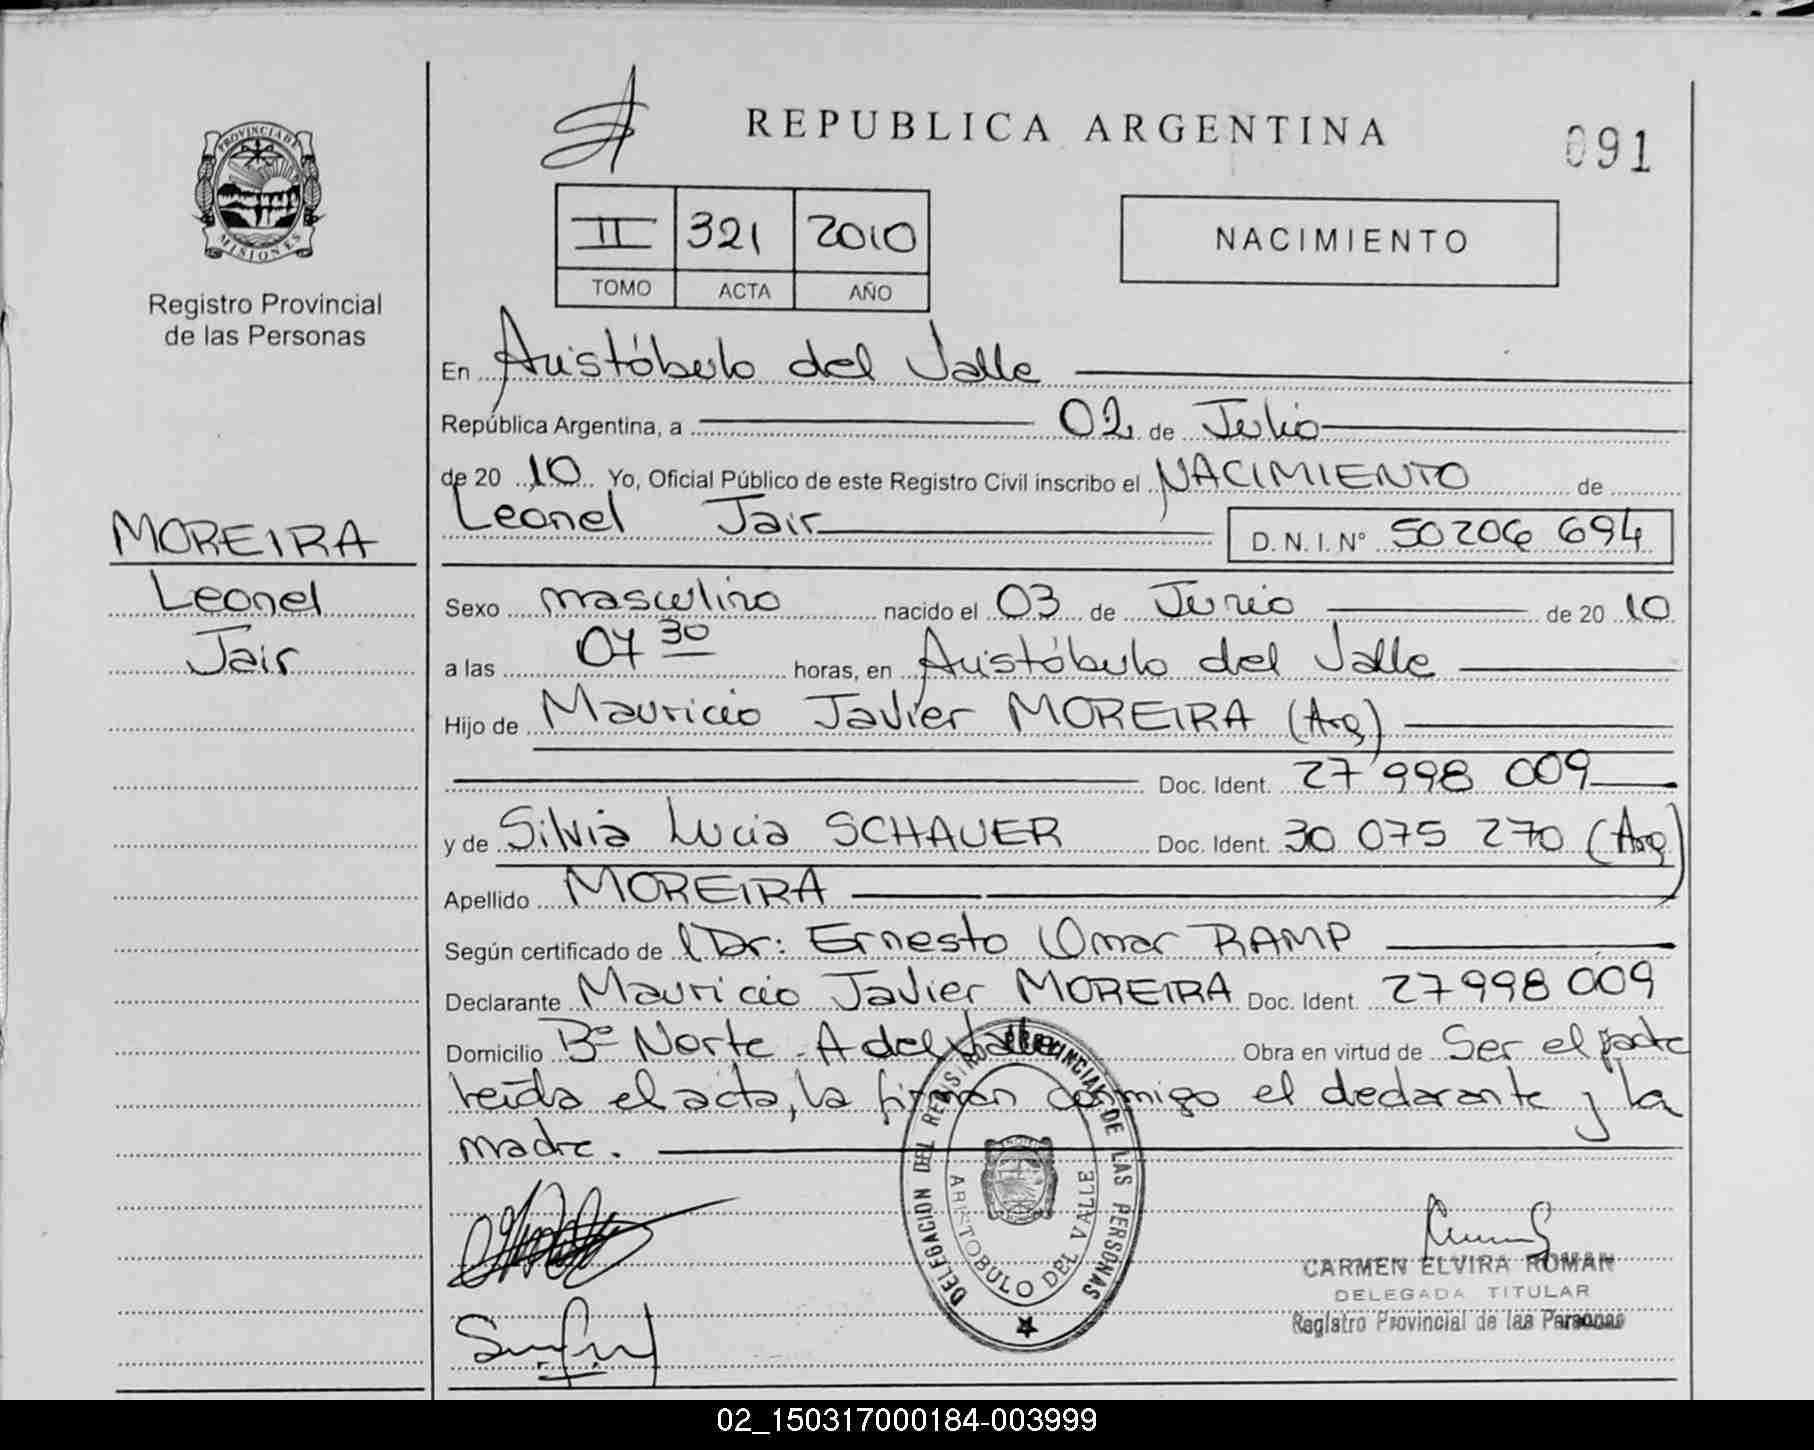 REPUBLICA ARGENTINA
091
PROVINCIA DE MISIONES
Registro Provincial
de las Personas
II 321 2010
TOMO ACTA AÑO
NACIMIENTO
En Aristóbulo del Valle
República Argentina, a 02 de Julio
de 20 10 Yo, Oficial Público de este Registro Civil inscribo el NACIMIENTO de
Leonel Jair D.N.I.Nº 50 206 694
MOREIRA
Leonel
Jair
Sexo masculino nacido el 03 de Junio de 20 10
a las 07 30 horas, en Aristóbulo del Valle
Hijo de Mauricio Javier MOREIRA (Arg)
Doc. Ident. 27 998 009
y de Silvia Lucia SCHAUER Doc. Ident. 30 075 270 (Arg)
Apellido MOREIRA
Según certificado de l Dr: Ernesto Omar RAMP
Declarante Mauricio Javier MOREIRA Doc. Ident. 27 998 009
Domicilio Bº Norte - A del Valle Obra en virtud de Ser el padre
leída el acta, la firman conmigo el declarante y la
madre.
DELEGACION DEL REGISTRO PROVINCIAL DE LAS PERSONAS
ARISTOBULO DEL VALLE
CARMEN ELVIRA ROMAN
DELEGADA TITULAR
Registro Provincial de las Personas
02_150317000184-003999